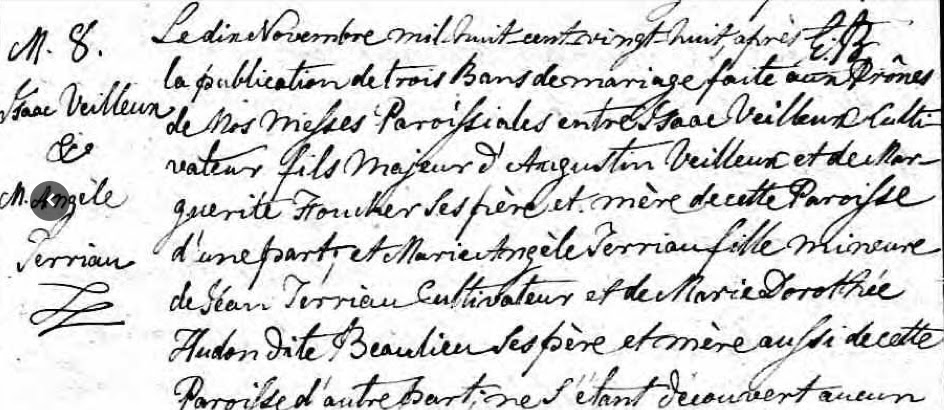 M. 8.
Isaac Veilleux
&
M. Angèle
Terriau
Le dix Novembre mil-huit-cent-vingt-huit, après
la publication de trois Bans de mariage faite aux Prônes
de Nos Messes Paroissiales entre Isaac Veilleux Culti-
vateur fils Majeur d'Augustin Veilleux et de Mar-
guerite Foucher ses père et mère de cette Paroisse
d'une part; et Marie Angèle Terriau fille mineure
de Jéan Terriau Cultivateur et de Marie Dorothée
Hudon dite Beaulieu ses père et mère aussi de cette
Paroisse d'autre part; ne s'étant découvert aucun